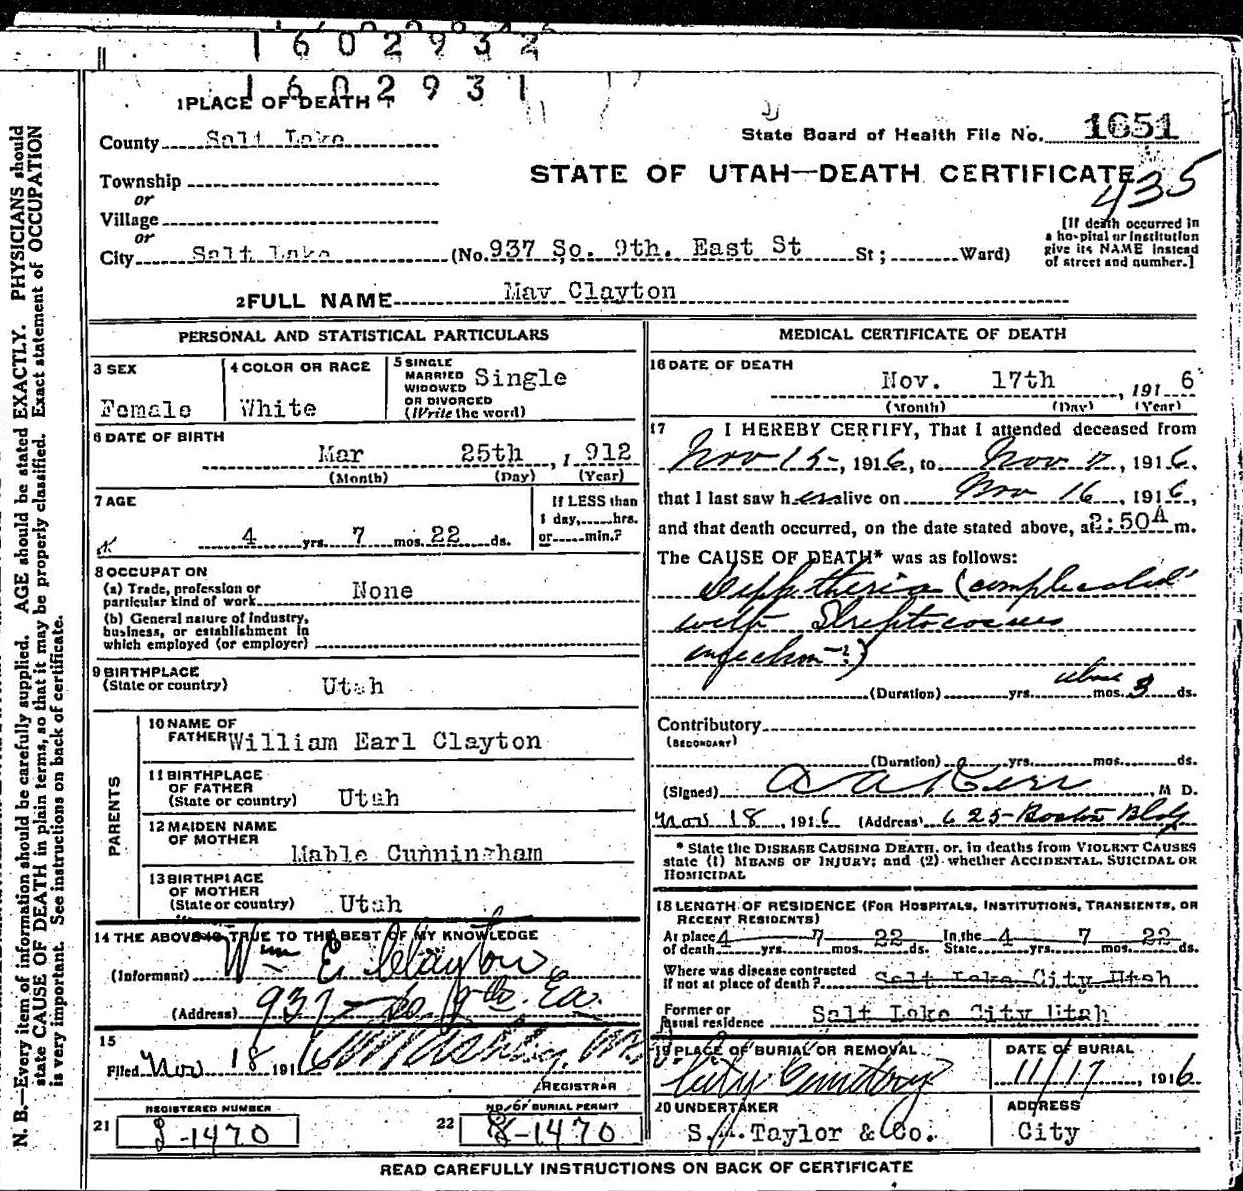 1602932
1602931
1 PLACE OF DEATH
County Salt Lake
State Board of Health File No. 1651
Township
STATE OF UTAH—DEATH CERTIFICATE
435
or
Village
or
City Salt Lake (No. 937 So. 9th. East St St; Ward)
[If death occurred in a hospital or institution give its NAME instead of street and number.]
2 FULL NAME May Clayton
PERSONAL AND STATISTICAL PARTICULARS
3 SEX
Female
4 COLOR OR RACE
White
5 SINGLE
MARRIED
WIDOWED
OR DIVORCED
(Write the word)
Single
6 DATE OF BIRTH
Mar 25th, 1912
(Month) (Day) (Year)
7 AGE
4 yrs. 7 mos. 22 ds.
If LESS than
1 day, hrs.
or min.?
8 OCCUPATION
(a) Trade, profession or
particular kind of work None
(b) General nature of industry,
business, or establishment in
which employed (or employer)
9 BIRTHPLACE
(State or country) Utah
PARENTS
10 NAME OF
FATHER William Earl Clayton
11 BIRTHPLACE
OF FATHER
(State or country) Utah
12 MAIDEN NAME
OF MOTHER
Mable Cunningham
13 BIRTHPLACE
OF MOTHER
(State or country) Utah
14 THE ABOVE IS TRUE TO THE BEST OF MY KNOWLEDGE
(Informant) Wm E. Clayton
(Address) 937 - So. 9th. Ea.
15
Filed Nov 18 1916
REGISTRAR
REGISTERED NUMBER
21 J-1470
NO. OF BURIAL PERMIT
22 8-1470
MEDICAL CERTIFICATE OF DEATH
16 DATE OF DEATH
Nov. 17th, 1916
(Month) (Day) (Year)
17 I HEREBY CERTIFY, That I attended deceased from
Nov 15, 1916, to Nov 17, 1916,
that I last saw her alive on Nov 16, 1916,
and that death occurred, on the date stated above, at 2:50 A m.
The CAUSE OF DEATH* was as follows:
Diphtheria (complicated
with Streptococcus
infection-?)
(Duration) yrs. mos. about 3 ds.
Contributory
(SECONDARY)
(Duration) yrs. mos. ds.
(Signed) A A Kerr, M D.
Nov 18, 1916 (Address) 625 Boston Bldg
* State the DISEASE CAUSING DEATH, or, in deaths from VIOLENT CAUSES
state (1) MEANS OF INJURY; and (2) whether ACCIDENTAL, SUICIDAL OR
HOMICIDAL
18 LENGTH OF RESIDENCE (FOR HOSPITALS, INSTITUTIONS, TRANSIENTS, OR
RECENT RESIDENTS)
At place of death 4 yrs. 7 mos. 22 ds. In the State 4 yrs. 7 mos. 22 ds.
Where was disease contracted
if not at place of death? Salt Lake City Utah
Former or
usual residence Salt Lake City Utah
19 PLACE OF BURIAL OR REMOVAL
City Cemetery
DATE OF BURIAL
11/17, 1916
20 UNDERTAKER
S. Taylor & Co.
ADDRESS
City
READ CAREFULLY INSTRUCTIONS ON BACK OF CERTIFICATE
N. B.—Every item of information should be carefully supplied. AGE should be stated EXACTLY. PHYSICIANS should
state CAUSE OF DEATH in plain terms, so that it may be properly classified. Exact statement of OCCUPATION
is very important. See instructions on back of certificate.